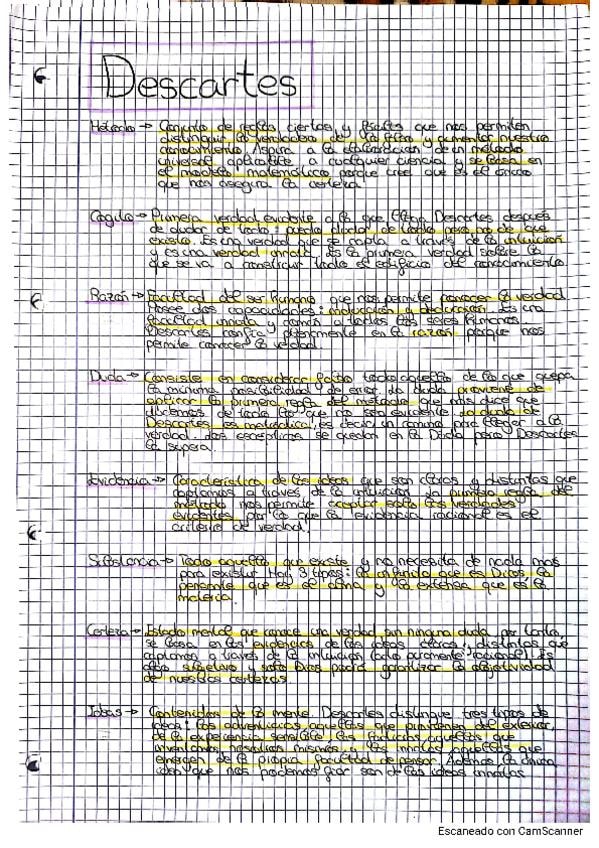 Descartes
Método → Conjunto de reglas, ciertas y fáciles que nos permiten
distinguir lo verdadero de lo falso y aumentar nuestro
conocimiento. Aspira a la elaboración de un método
universal aplicable a cualquier ciencia y se basa en
el modelo matemático porque cree que es el único
que nos asegura la certeza.
Cogito → Primera verdad evidente a la que llega Descartes después
de dudar de todo: puedo dudar de todo pero no de que
existo. Es una verdad que se capta a través de la intuición
y es una verdad innata. Es la primera verdad sobre la
que se va a construir todo el edificio del conocimiento.
Razón → Facultad del ser humano que nos permite conocer la verdad
posee dos capacidades: y deducción. Es una
facultad innata y común a todos los seres humanos
Descartes confía plenamente en la razón porque nos
permite conocer la verdad.
Duda → Consiste en considerar falso todo aquello de lo que quepa
la mínima posibilidad de error. La duda proviene de
aplicar la primera regla del método que nos dice que
dudemos de todo lo que no sea evidente. La duda de
Descartes es metódica, es decir, un camino para llegar a la
verdad. Los escépticos se quedan en la Duda pero Descartes
la supera.
Evidencia → Característica de las ideas que son claras y distintas que
captamos a través de la intuición. La primera regla del
método nos permite aceptar solo las verdades
evidentes por lo que la evidencia racional es el
criterio de verdad.
Substancia → Todo aquello que existe y no necesita de nada más
para existir. Hay 3 tipos: la infinita que es Dios, la
pensante que es el alma y la extensa que es la
materia.
Certeza → Estado mental que conoce una verdad sin ninguna duda, por tanto,
se basa en las evidencias de las ideas claras y distintas que
captamos a través de la intuición (acto puramente racional). Es
algo subjetivo y solo Dios podrá garantizar la objetividad
de nuestras certezas.
Ideas → Contenidos de la mente. Descartes distingue tres tipos de
ideas: las adventicias aquellas que provienen del exterior,
de la experiencia sensible, las facticias aquellas que
inventamos nosotros mismos, y las innatas aquellas que
emergen de la propia facultad de pensar. Además, la única
idea que nos podemos fiar son de las ideas innatas.
Escaneado con CamScanner